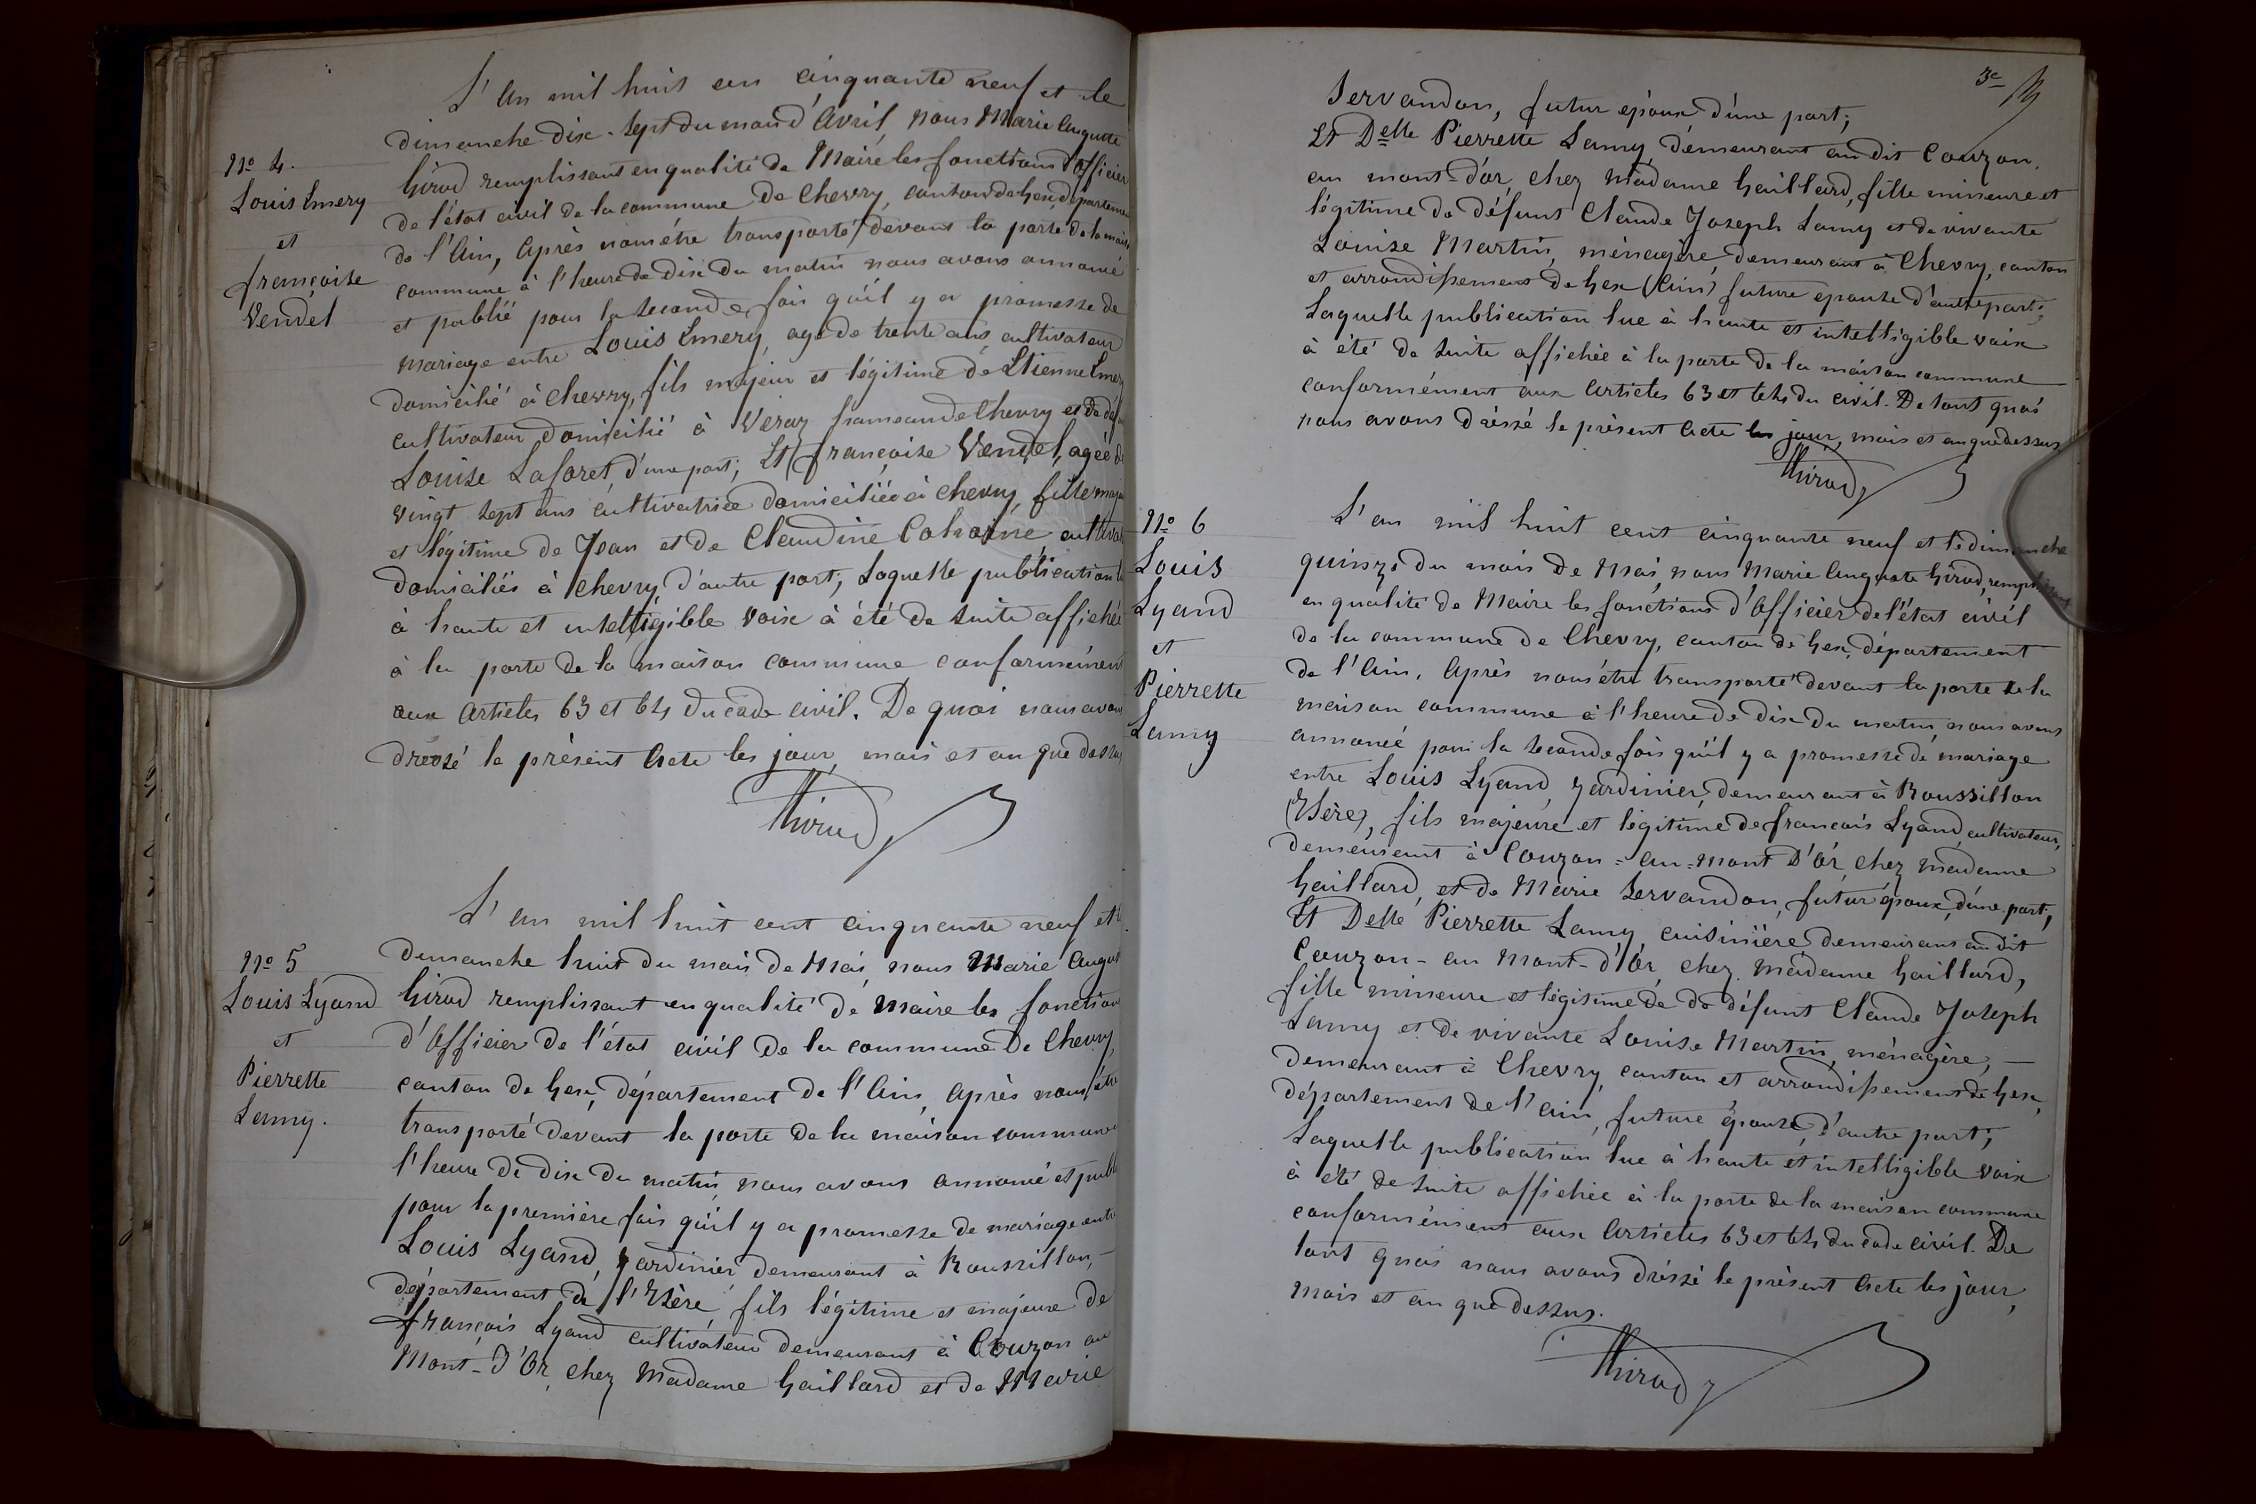 No 4.
Louis Emery
et
françoise
Vendel
L'An mil huit cen cinquante neuf et le
dimanche dix-sept du mois d'Avril, nous Marie Auguste
Girod remplissant en qualité de Maire les fonctions d'Officier
de l'état civil de la commune de Chevry, canton de Gex département
de l'Ain, Après nous être transporté devant la porte de la maison
commune à l'heure de dix du matin nous avons annoncé
et publié pour la seconde fois qu'il y a promesse de
mariage entre Louis Emery, agé de trente ans, cultivateur
domicilié à Chevry, fils majeur et légitime de Etienne Emery
cultivateur domicilié à Veraz hameau de Chevry et de
Louise Laforet, d'une part; Et françoise Vendel, agée de
vingt sept ans cultivatrice domiciliée à Chevry, fille
et légitime de Jean et de Claudine
domiciliés à Chevry, d'autre part; Laquelle publication
à haute et intelligible voix à été de suite affichée
à la porte de la maison commune conformément
aux Articles 63 et 64 du code civil. De quoi nous avons
dressé le présent Acte les jour, mois et an que dessus
AGirod
No 5
Louis Lyand
et
Pierrette
Lamy.
L'an mil huit cent cinquante neuf et
dimanche huit du mois de Mai, nous Marie August
Girod remplissant en qualité de Maire les fonction
d'Officier de l'état civil de la commune de Chevry,
canton de Gex, département de l'Ain, Après nous être
transporté devant la porte de la maison commune
l'heure de dix du matin, nous avons annoncé et publ
pour la première fois qu'il y a promesse de mariage entre
Louis Lyand, jardinier demeurant à Roussillon,
département de l'Isère fils légitime et majeure de
françois Lyand cultivateur demeurant à Couzon au
Mont-D'Or, chez Madame Gaillard et de Marie
3e
Servandon, futur époux d'une part;
Et Delle Pierrette Lamy, demeurant au dit Couzon.
au mont-d'or, chez Madame Gaillard, fille mineure et
légitime de défunt Claude Joseph Lamy et de vivante
Louise Martin, ménagère, demeurant à Chevry, canton
et arrondissement de Gex (Ain) future épouse d'autre part;
Laquelle publication lue à haute et intelligible voix
à été de suite affichée à la porte de la maison commune
conformément aux Articles 63 et 64 du civil. De tout quoi
nous avons dressé le présent Acte les jour, mois et an que dessus
AGirod
No 6
Louis
Lyand
et
Pierrette
Lamy
L'an mil huit cent cinquante neuf et le dimanche
quinze du mois de Mai, nous Marie Auguste Girod, remplissant
en qualité de Maire les fonctions d'Officier de l'état civil
de la commune de Chevry, canton de Gex, département
de l'Ain, Après nous être transporté devant la porte de la
maison commune à l'heure de dix du matin, nous avons
annoncé pour la seconde fois qu'il y a promesse de mariage
entre Louis Lyand, jardinier, demeurant à Roussillon
(Isère), fils majeure et légitime de françois Lyand, cultivateur,
demeurant à Couzon-au-Mont D'Or, chez Madame
Gaillard, et de Marie Servandon, futur époux, d'une part;
Et Delle Pierrette Lamy, cuisinière demeurant au dit
Couzon-au Mont-d'Or, chez Madame Gaillard,
fille mineure et légitime de de défunt Claude Joseph
Lamy et de vivante Louise Martin, ménagère,
demeurant à Chevry, canton et arrondissement de Gex,
département de l'ain, future épouse, d'autre part;
Laquelle publication lue à haute et intelligible voix
à été de suite affichée à la porte de la maison commune
conformément aux Articles 63 et 64 du code civil. De
tout quoi nous avons dressé le présent Acte les jour,
mois et an que dessus.
AGirod